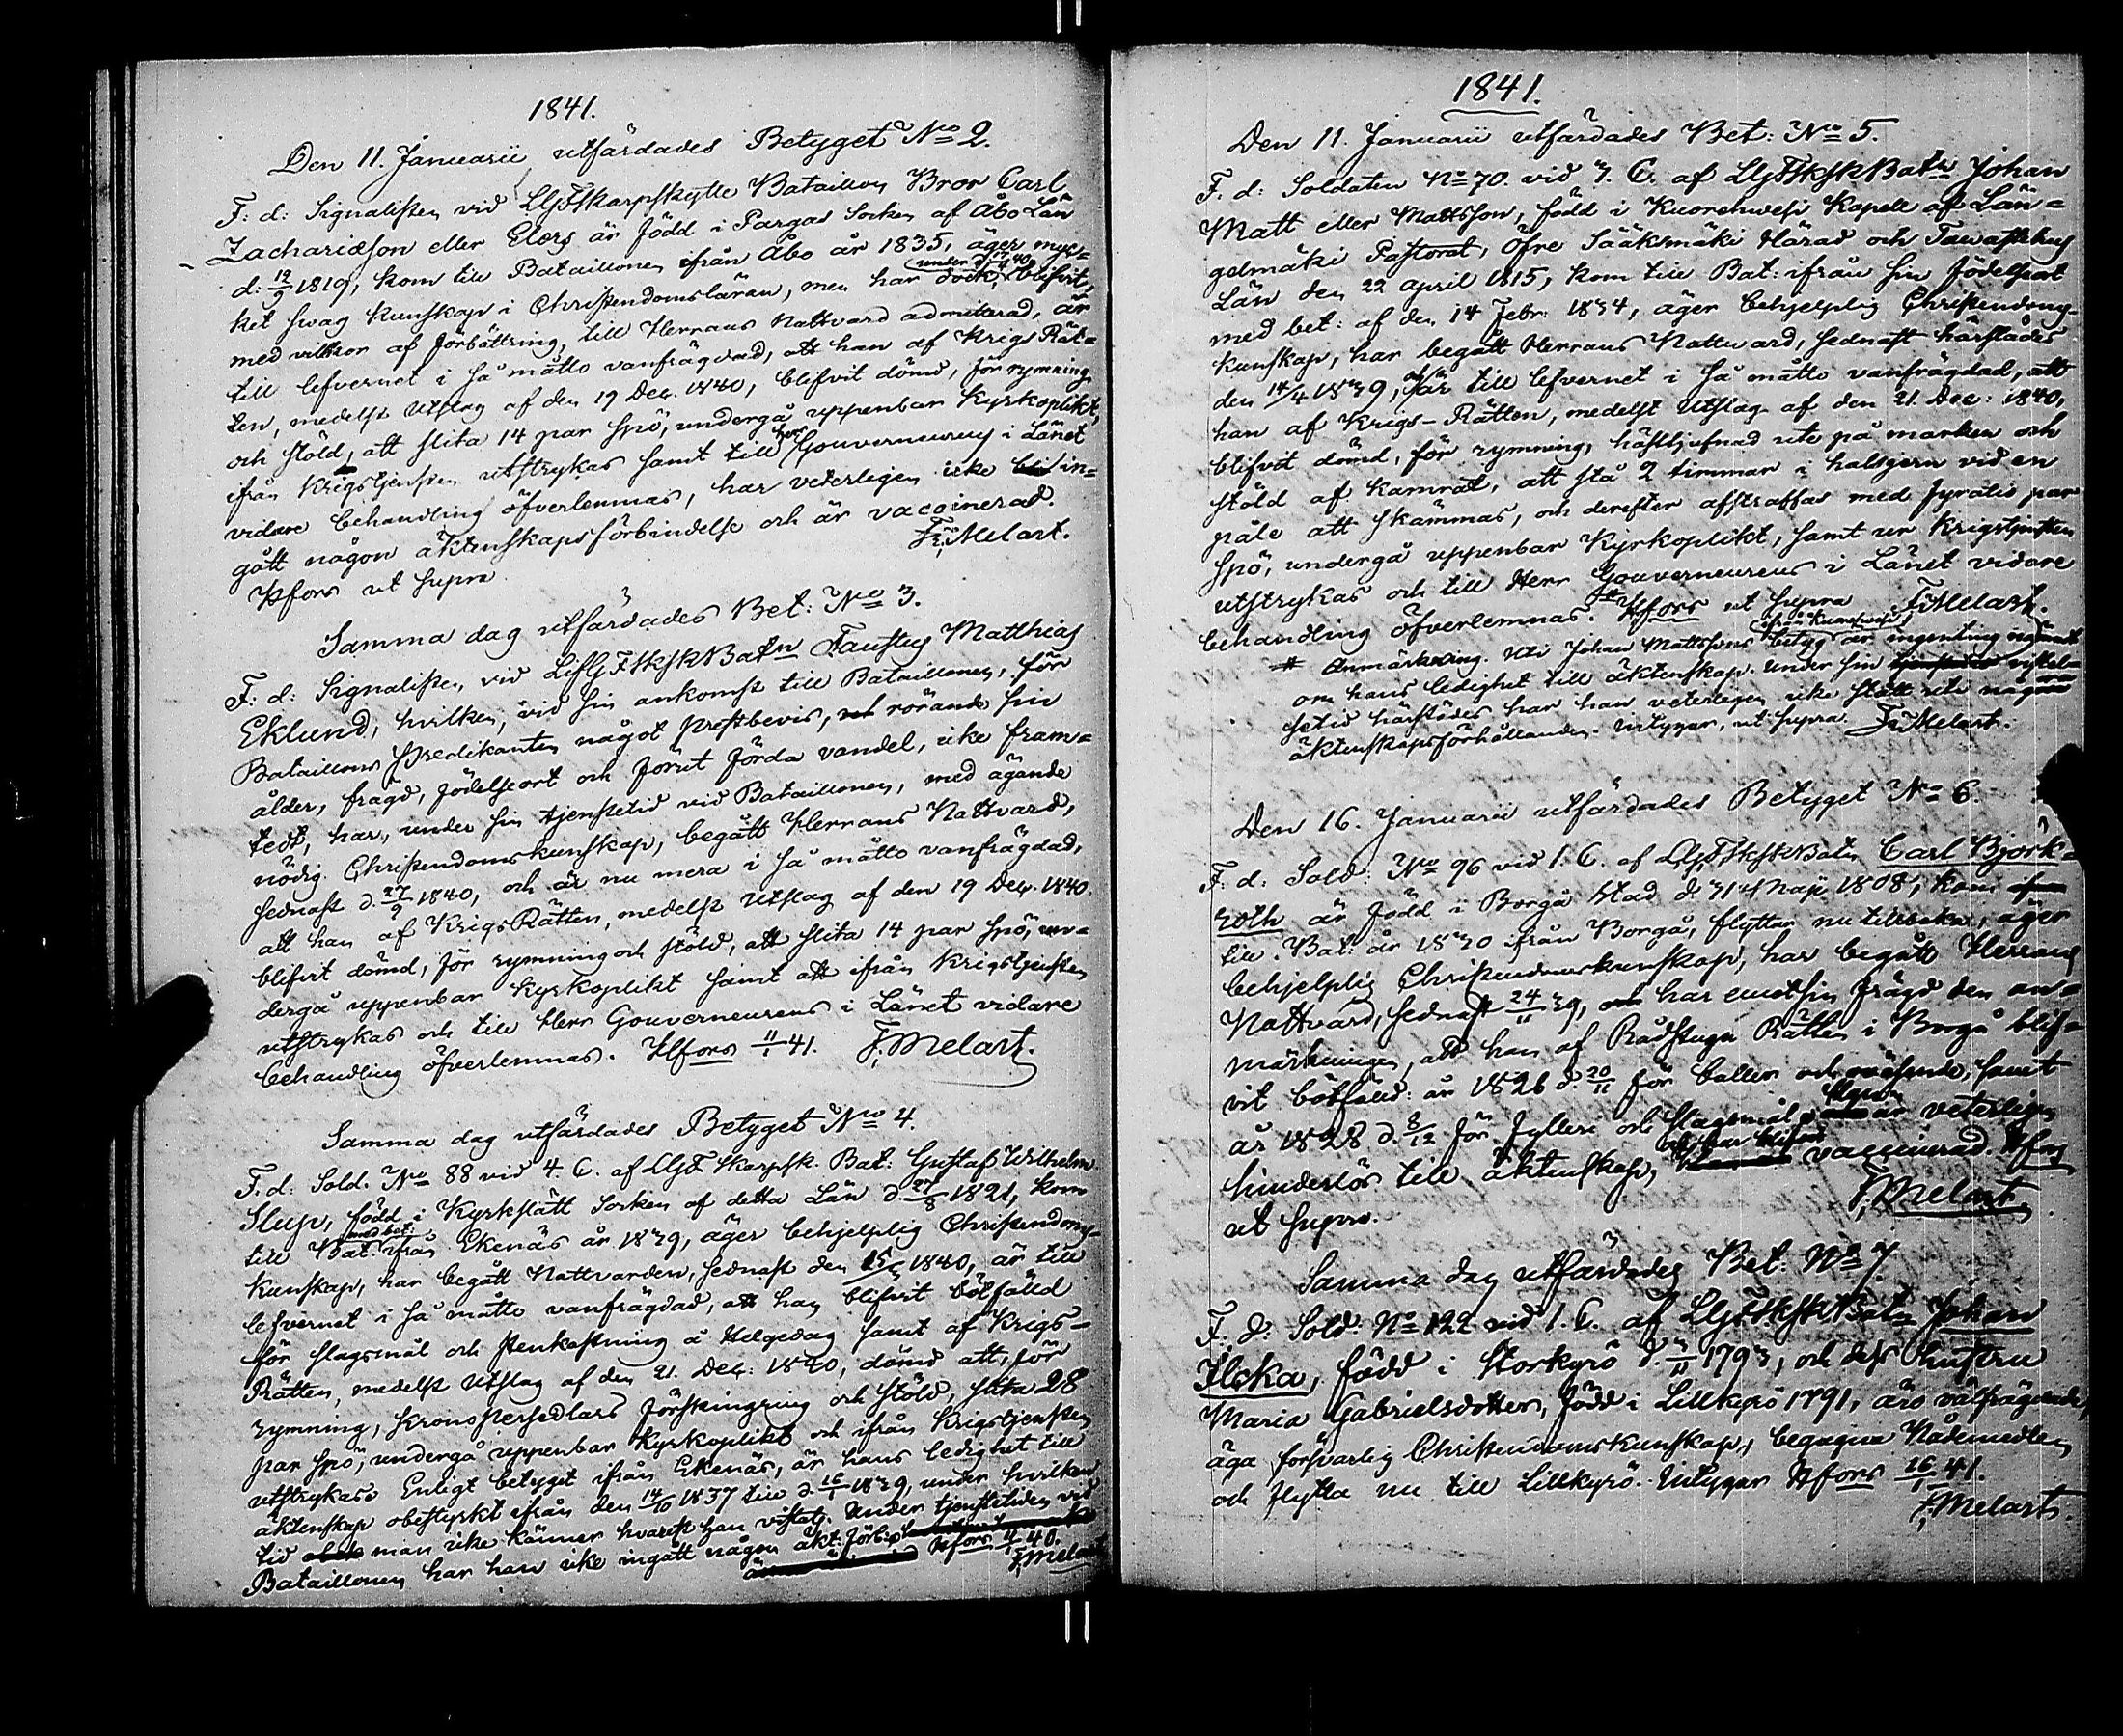 1841.
Den 11. Januarii utfärdades Betyget No 2.
F: d: Signalisten vid LGFSkarpskytte Bataillon Bror Carl
Zachariæson eller Elers är född i Pargas Socken af Åbo Län
d: 12/9 1819, kom till Bataillonen ifrån Åbo år 1835, äger myc=
ket swag kunskap i Christendomsläran, men har dock, blifvit,
med vilkor af förbättring, till Herrans Nattvard admitterad, är
till lefvernet i så måtto vanfrägdad, att han af Krigs Rät=
ten, medelst Utslag af den 19 Dec. 1840, blifvit dömd, för rymning
och stöld, att slita 14 par spö, undergå uppenbar Kyrkoplikt,
ifrån Krigstjensten utstrykas samt till Herr Gouverneuren i Länet
vidare behandling öfverlemnas, har veterligen icke in=
gått någon äktenskapsförbindelse och är vaccinerad.
Hfors ut supra Fr. Melart.
Samma dag utfärdades Bet: No 3.
F: d: Signalisten, vid LGFSkskBatn Faustus Matthias
Eklund, hvilken, vid sin ankomst till Bataillonen, för
Bataillons Predikanten något prestbevis, rörande sin
ålder, frägd, födelseort och förut förda vandel, icke fram=
tedt, har, under sin tjenstetid vid Bataillonen, med ägande
nödig Christendomskunskap, begått Herrans Nattvard,
sednast d. 27/9 1840, och är nu mera i så måtto vanfrägdad,
att han af KrigsRätten, medelst Utslag af den 19 Dec. 1840.
blifvit dömd, för rymning och stöld, att slita 14 par spö, un=
dergå uppenbar Kyrkoplikt samt att ifrån Krigstjensten
utstrykas och till Herr Gouverneurens i Länet vidare
behandling öfverlemnas. Hfors 11/1 41. F. Melart.
Samma dag utfärdades Betyget No 4.
F. d: Sold. No 88 vid 4. C. af LGF Skarpsk. Bat: Gustaf Wilhelm
Slup, född i Kyrkslätt Socken af detta Län d 27/8 1821, kom
till Bat: med bet: ifrån Ekenäs år 1839, äger behjelplig Christendoms
kunskap, har begått Nattvarden, sednast den 1840, är till
lefvernet i så måtto vanfrägdad, att han blifvit bötfälld
för slagsmål och stenkastning å Helgedag samt af Krigs=
Rätten, medelst Utslag af den 21. Dec: 1840, dömd att, för
rymning, Kronopersedlars förskingring och stöld, slita 28
par spö, undergå uppenbar Kyrkoplikt och ifrån Krigstjensten
utstrykas. Enligt betyget ifrån Ekenäs, är hans ledighet till
äktenskap obestyrkt ifrån den 14/10 1837 till d 16/1 1839, under hvilken
tid man icke känner hvarest han vistats. Under tjenstetiden vid
Bataillonen har han icke ingått någon äkt: förb: Hfors 11/1 40.
F. Melart
1841.
Den 11. Januarii utfärdades Bet: No 5.
F. d: Soldaten No 70. vid 3. C. af LGFSkskBatn Johan
Matt eller Mattsson, född i Kuorehwesi Kapell af Län=
gelmäki Pastorat, Öfre Sääksmäki Härad och Tawastehus
Län den 22 april 1815, kom till Bat: ifrån sin födelseort
med bet: af den 14 Febr: 1834, äger behjelplig Christendoms-
kunskap, har begått Herrans Nattvard, sednast härstädes
den 14/4 1839, är till lefvernet i så måtto vanfrägdad, att
han af Krigs-Rätten, medelst Utslag af den 21. Dec: 1840,
blifvit dömd, för rymning, hästtjufnad ute på marken och
stöld af kamrat, att stå 2 timmar i halsjern vid en
påle att skämmas, och derefter afstraffas med fyratio par
spö, undergå uppenbar Kyrkoplikt, samt ur Krigstjensten
utstrykas och till Herr Gouverneurens i Länet vidare
behandling öfverlemnas. # Hfors ut supra F. Melart.
# Anmärkning. Uti Johan Mattssons betyg ifrån Kuorehwesi är ingenting nämnt
om hans ledighet till äktenskap. Under sin vistel=
setid härstädes har han veterligen icke stått uti några
äktenskapsförhållanden. Intygar, ut supra. Fr. Melart.
Den 16. Januarii utfärdades Betyget No 6.
F: d: Sold: No 96 vid 1. C. af LGFSkskBatn Carl Björk=
roth är född i Borgå Stad d 31 Maji 1808, kom
till Bat: år 1830 ifrån Borgå, flyttar nu tillbaka, äger
behjelplig Christendomskunskap, har begått Herrans
Nattvard, sednast 24/11 39, har emot sin frägd den an=
märkningen, att han af Rådstugu Rätten i Borgå blif=
vit bötfälld: år 1826 d 20/11 för buller och oväsende, samt
år 1828 d. 8/12 för fylleri och slagsmål, är veterligen
hinderlös till äktenskap, och har blifvit vaccinerad. Hfors
ut supra. F. Melart
Samma dag utfärdades Bet: No 7.
F. d: Sold: No 122 vid 1. C. af LGFSkskBatn Johan
Ilcka, född i Storkyrö d. 3/11 1793, och dess hustru
Maria Gabrielsdotter, född i Lillkyrö 1791, äro välfrägdade,
äga försvarlig Christendomskunskap, begagna Nådemedlen
och flytta nu till Lillkyrö. Intygar Hfors 16/1 41.
F. Melart.